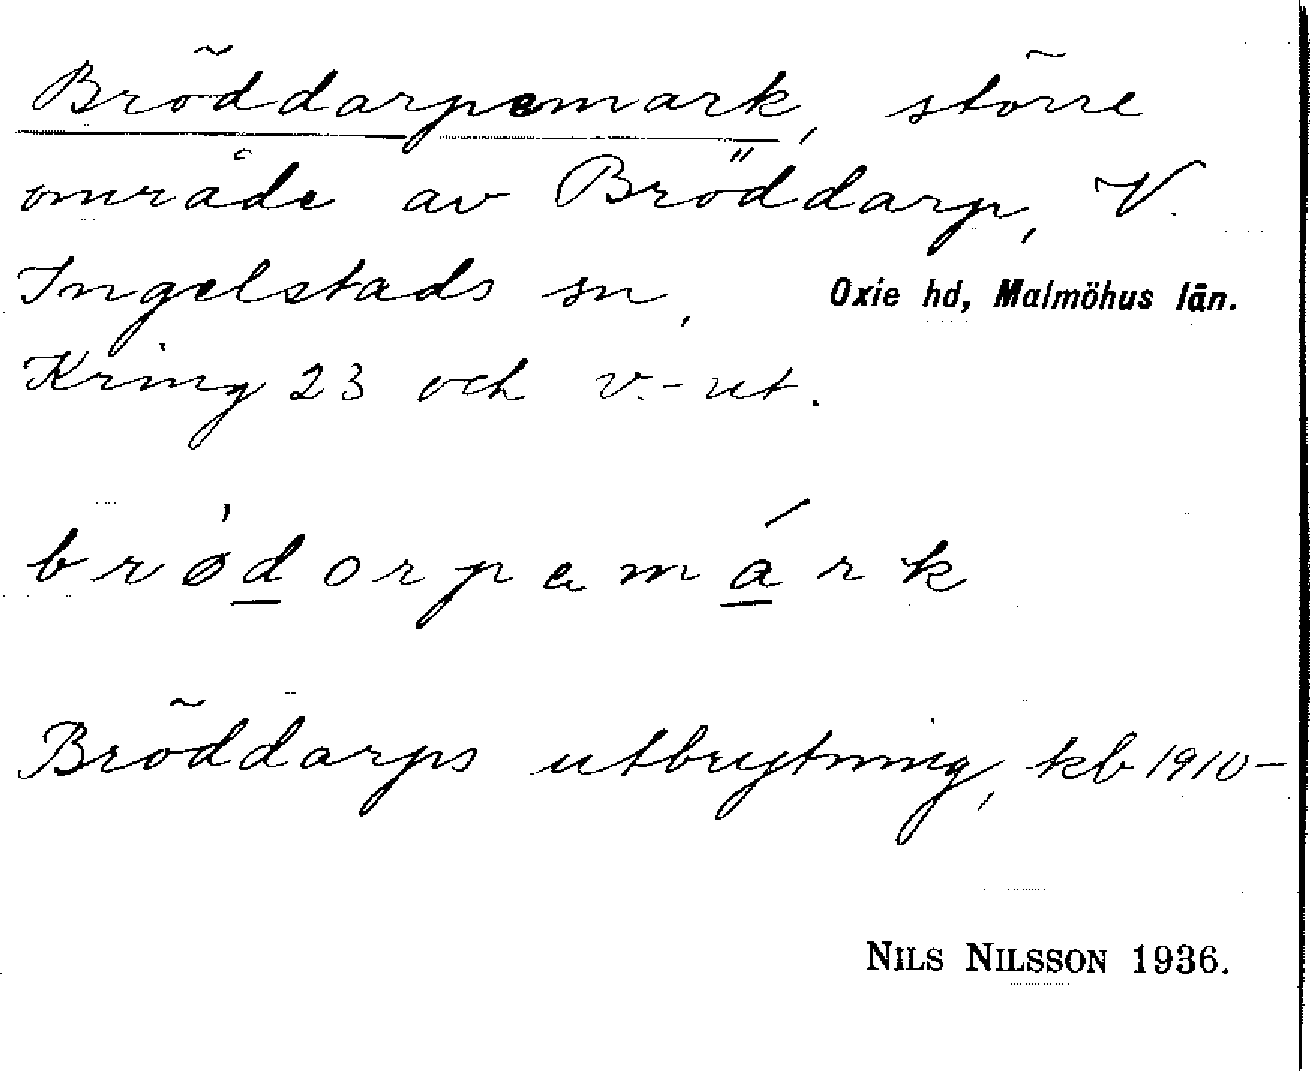 Bröddarpemark, större
område av Bröddarp, V.
Ingelstads sn, Oxie hd, Malmöhus län.
Kring 23 och v.-ut.
brødorpamárk
Bröddarps utbrytning, kb 1910–
NILS NILSSON 1936.